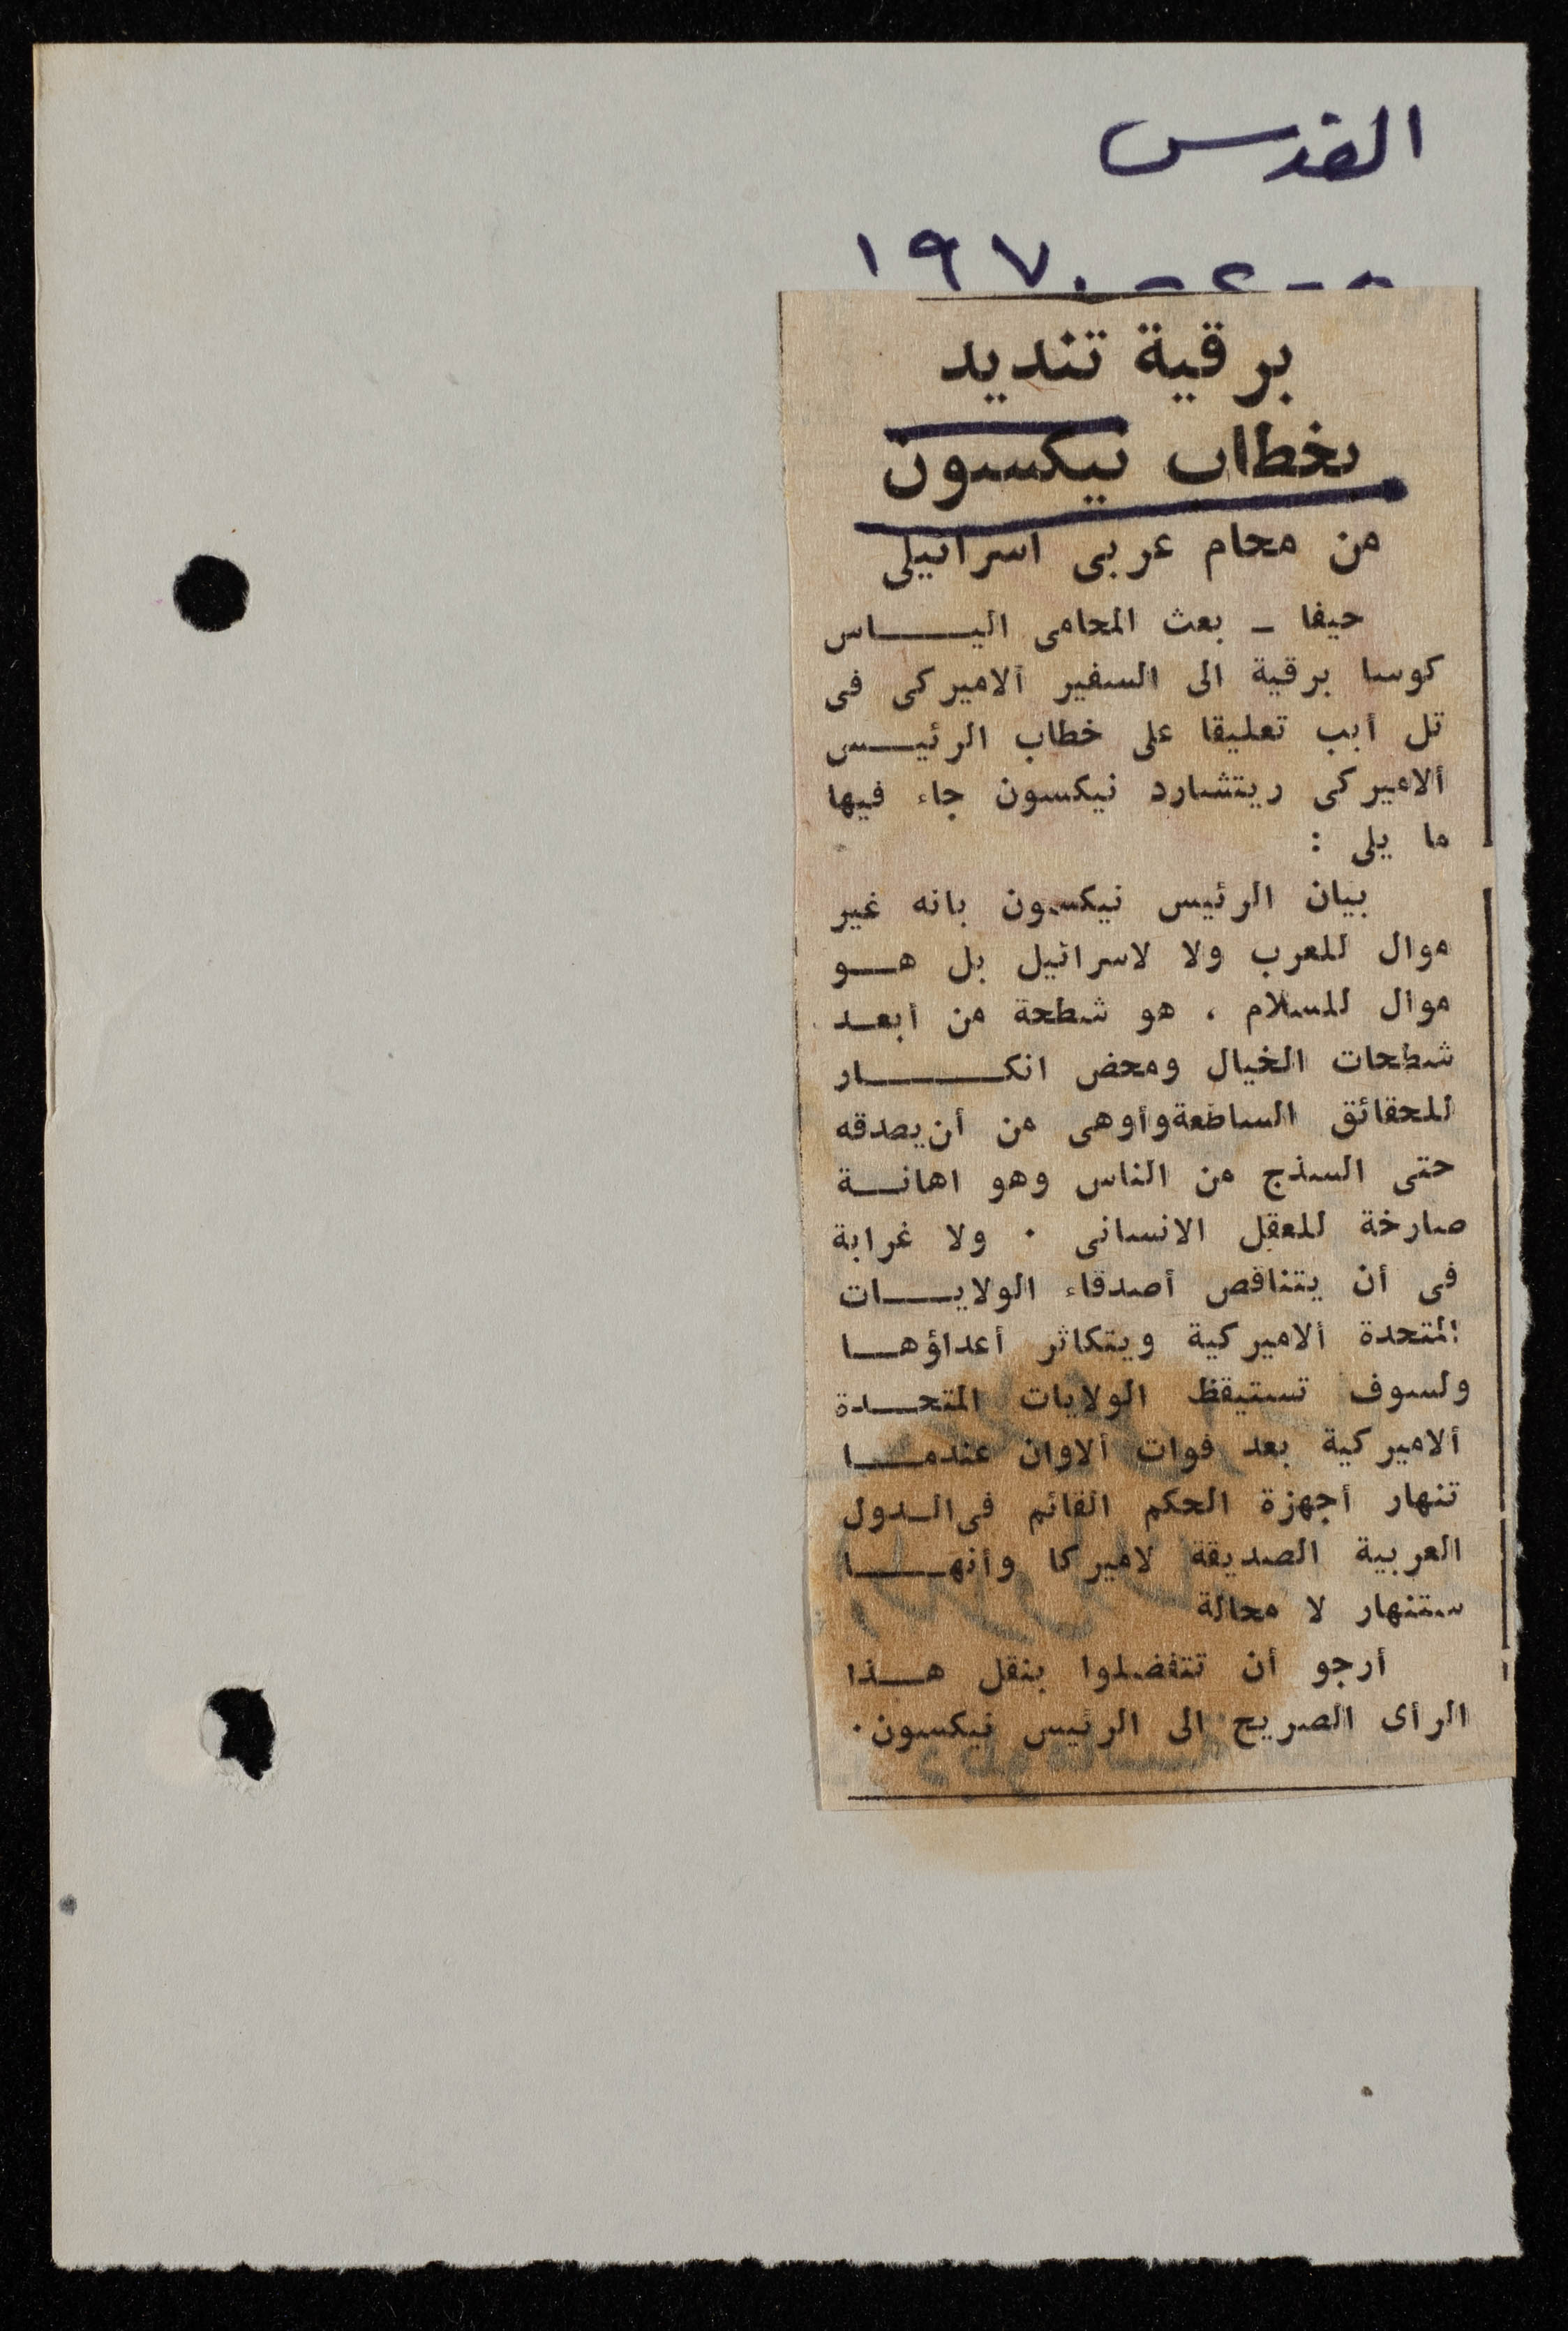 القدس
٥-٢-١٩٧٠
برقية تنديد
بخطاب نيكسون
من محام عربى اسرائيلى
حيفا ـ بعث المحامى اليـــــاس
كوسا برقية الى السفير ألاميركى فى
تل أبب تعليقا على خطاب الرئيـــس
ألاميركى ريتشارد نيكسون جاء فيها
ما يلى :
بيان الرئيس نيكسون بانه غير
موال للعرب ولا لاسرائيل بل هـــو
موال للسلام ، هو شطحة من أبعــد
شطحات الخيال ومحض انكـــــار
للحقائق الساطعة وأوهى من أن يصدقه
حتى السذج من الناس وهو اهانــة
صارخة للعقل الانسانى ٠ ولا غرابة
فى أن يتناقص أصدقاء الولايـــات
المتحدة ألاميركية ويتكاثر أعداؤهــا
ولسوف تستيقظ الولايات المتحــدة
ألاميركية بعد فوات ألاوان عندمــا
تنهار أجهزة الحكم القائم فى الــدول
العربية الصديقة لاميركا وأنهـــا
ستنهار لا محالة
أرجو أن تتفضلوا بنقل هــذا
الرأى الصريح الى الرئيس نيكسون٠